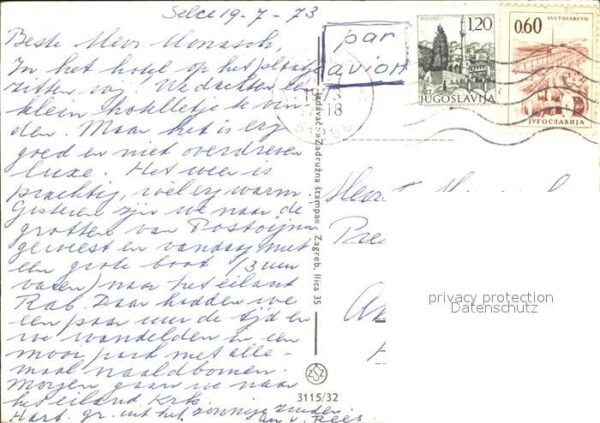 Selce 19-7-73
Beste Meer Monasch,
In het hotel op het plaatje
zitten wij. We dachten een
klein hotelletje te vin-
den. Maar het is erg
goed en niet overdreven
luxe. Het weer is
prachtig, wel erg warm.
Gisteren zijn we naar de
grotten van Postojna
geweest en vandaag met
een grote boot (3 uur
varen) naar het eiland
Rab. Daar hadden we
een paar uur de tijd en
we wandelden in een
mooi park met alle-
maal naaldbomen.
Morgen gaan we naar
het eiland Krk.
Hart. gr. uit het zonnige zuiden
An v. Rees
par
avion
1,20
JUGOSLAVIJA
SVETOZAREVO
0,60
ЈУГОСЛАВИЈА
18
Izdavačka Zadružna štampa, Zagreb, Ilica 35
3115/32
privacy protection
Datenschutz